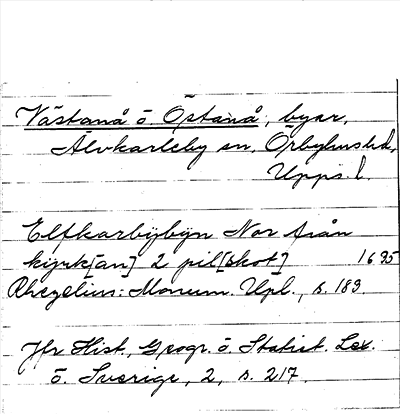 Västanå o. Östanå, byar,
Älvkarleby sn, Örbyhus hd,
Upps. l.
Elfkarbÿbÿn Nor från
kÿrk[an] 2 pil[skot] 1695
Rhezelius: Monum. Upl., s. 189.
Jfr Hist., Geogr. o. Statist. Lex.
ö. Sverige, 2, s. 217.